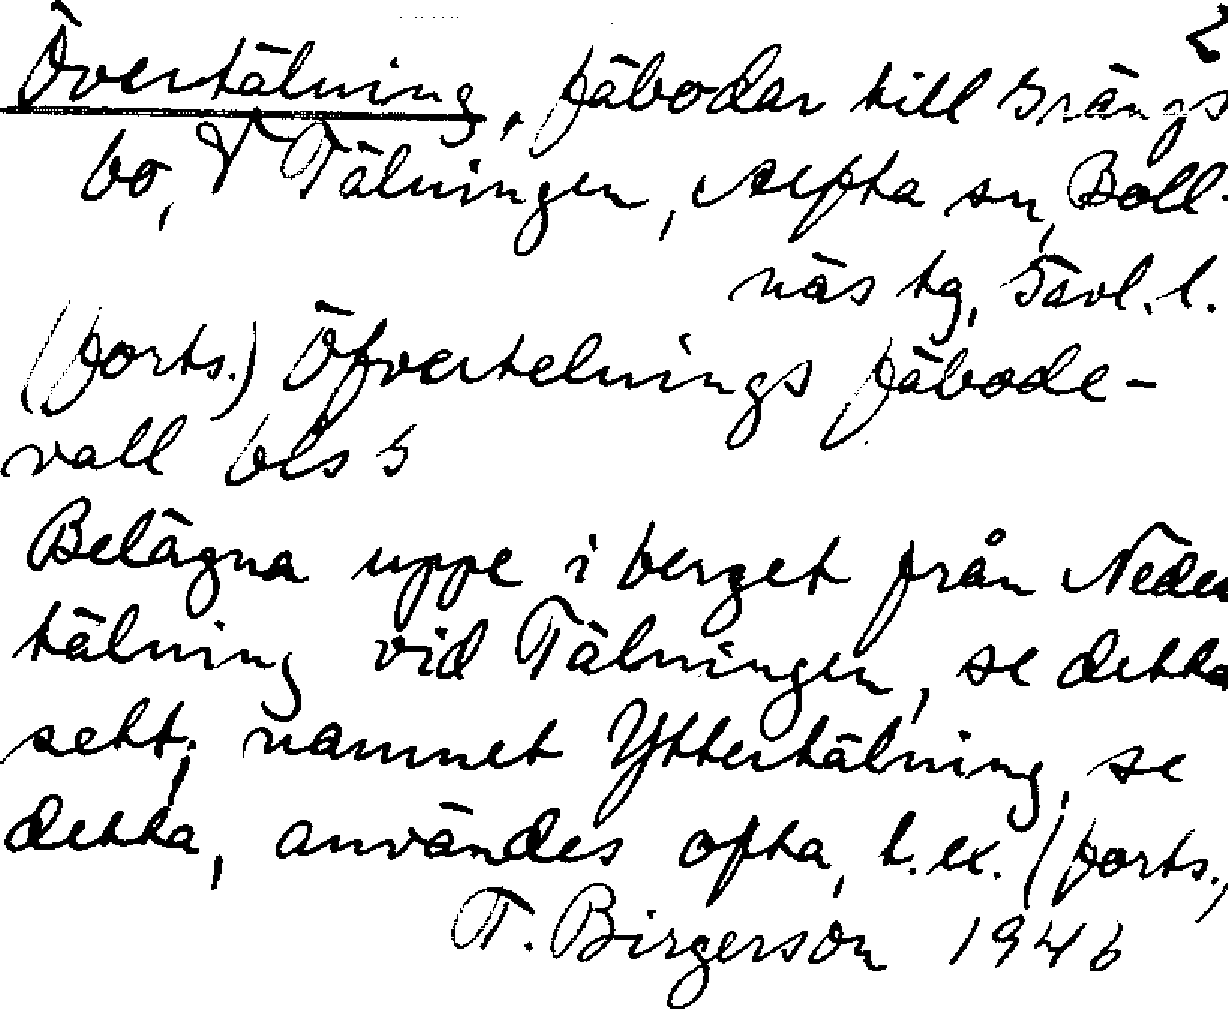 2
Övertälning, fäbodar till Gängs
bo, V Tälningen, Alfta sn, Boll-
näs tg, Gävl. l.
(forts.) Öfvertelnings fäbode-
vall bls 5
Belägna uppe i berget från Neder
tälning vid Tälningen, se detta
sett; namnet Yttertälning, se
detta, användes ofta, t.ex. (forts.,
T. Birgerson 1946